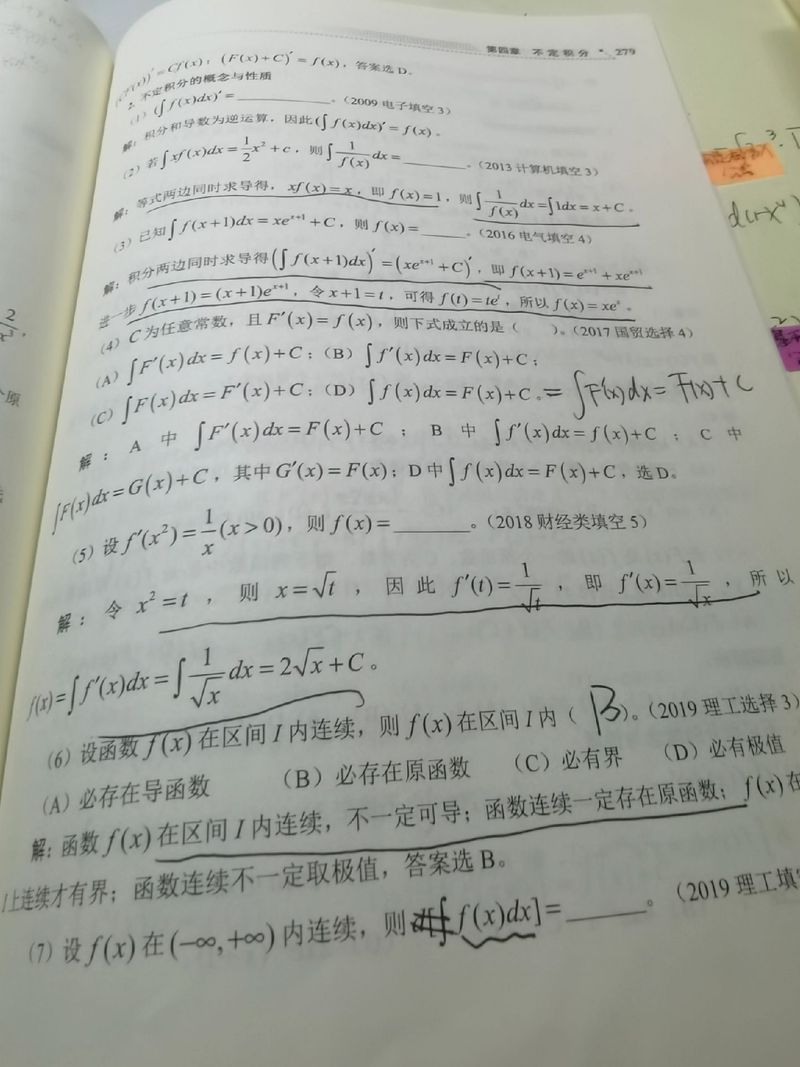 第四章 不定积分 · 279
f(x))′=Cf(x)；(F(x)+C)′=f(x)，答案选D。
2. 不定积分的概念与性质
(1) (∫f(x)dx)′=________。（2009 电子填空 3）
解：积分和导数为逆运算，因此(∫f(x)dx)′=f(x)。
(2) 若∫xf(x)dx=1/2x²+c，则∫1/f(x)dx=________。（2013 计算机填空 3）
解：等式两边同时求导得，xf(x)=x，即 f(x)=1，则∫1/f(x)dx=∫1dx=x+C。
(3) 已知∫f(x+1)dx=xeˣ⁺¹+C，则 f(x)=________。（2016 电气填空 4）
解：积分两边同时求导得(∫f(x+1)dx)′=(xeˣ⁺¹+C)′，即 f(x+1)=eˣ⁺¹+xeˣ⁺¹
进一步 f(x+1)=(x+1)eˣ⁺¹，令 x+1=t，可得 f(t)=teᵗ，所以 f(x)=xeˣ。
(4) C 为任意常数，且 F′(x)=f(x)，则下式成立的是（ ）。（2017 国贸选择 4）
(A) ∫F′(x)dx=f(x)+C；(B) ∫f′(x)dx=F(x)+C；
(C) ∫F(x)dx=F′(x)+C；(D) ∫f(x)dx=F(x)+C。=∫F′(x)dx=F(x)+C
解：A 中 ∫F′(x)dx=F(x)+C；B 中 ∫f′(x)dx=f(x)+C；C 中
∫F(x)dx=G(x)+C，其中 G′(x)=F(x)；D 中∫f(x)dx=F(x)+C，选 D。
(5) 设 f′(x²)=1/x(x>0)，则 f(x)=________。（2018 财经类填空 5）
解：令 x²=t，则 x=√t，因此 f′(t)=1/√t，即 f′(x)=1/√x，所以
f(x)=∫f′(x)dx=∫1/√x dx=2√x+C。
(6) 设函数 f(x) 在区间 I 内连续，则 f(x) 在区间 I 内（ B ）。（2019 理工选择 3）
(A) 必存在导函数 (B) 必存在原函数 (C) 必有界 (D) 必有极值
解：函数 f(x) 在区间 I 内连续，不一定可导；函数连续一定存在原函数；f(x) 在
I上连续才有界；函数连续不一定取极值，答案选 B。
(7) 设 f(x) 在 (−∞,+∞) 内连续，则 d[∫f(x)dx]=________。（2019 理工填